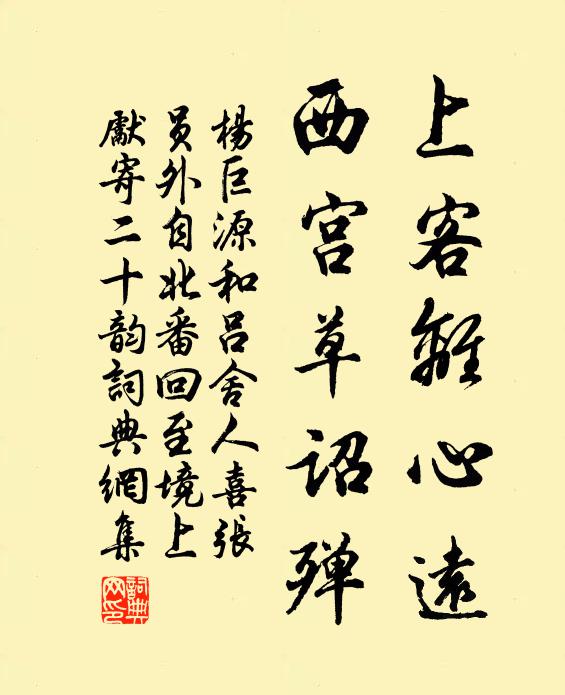 上客離心遠
西宫草詔殫
楊巨源和吕舍人喜張
員外自北番回至境上
獻寄二十韵詞典網集